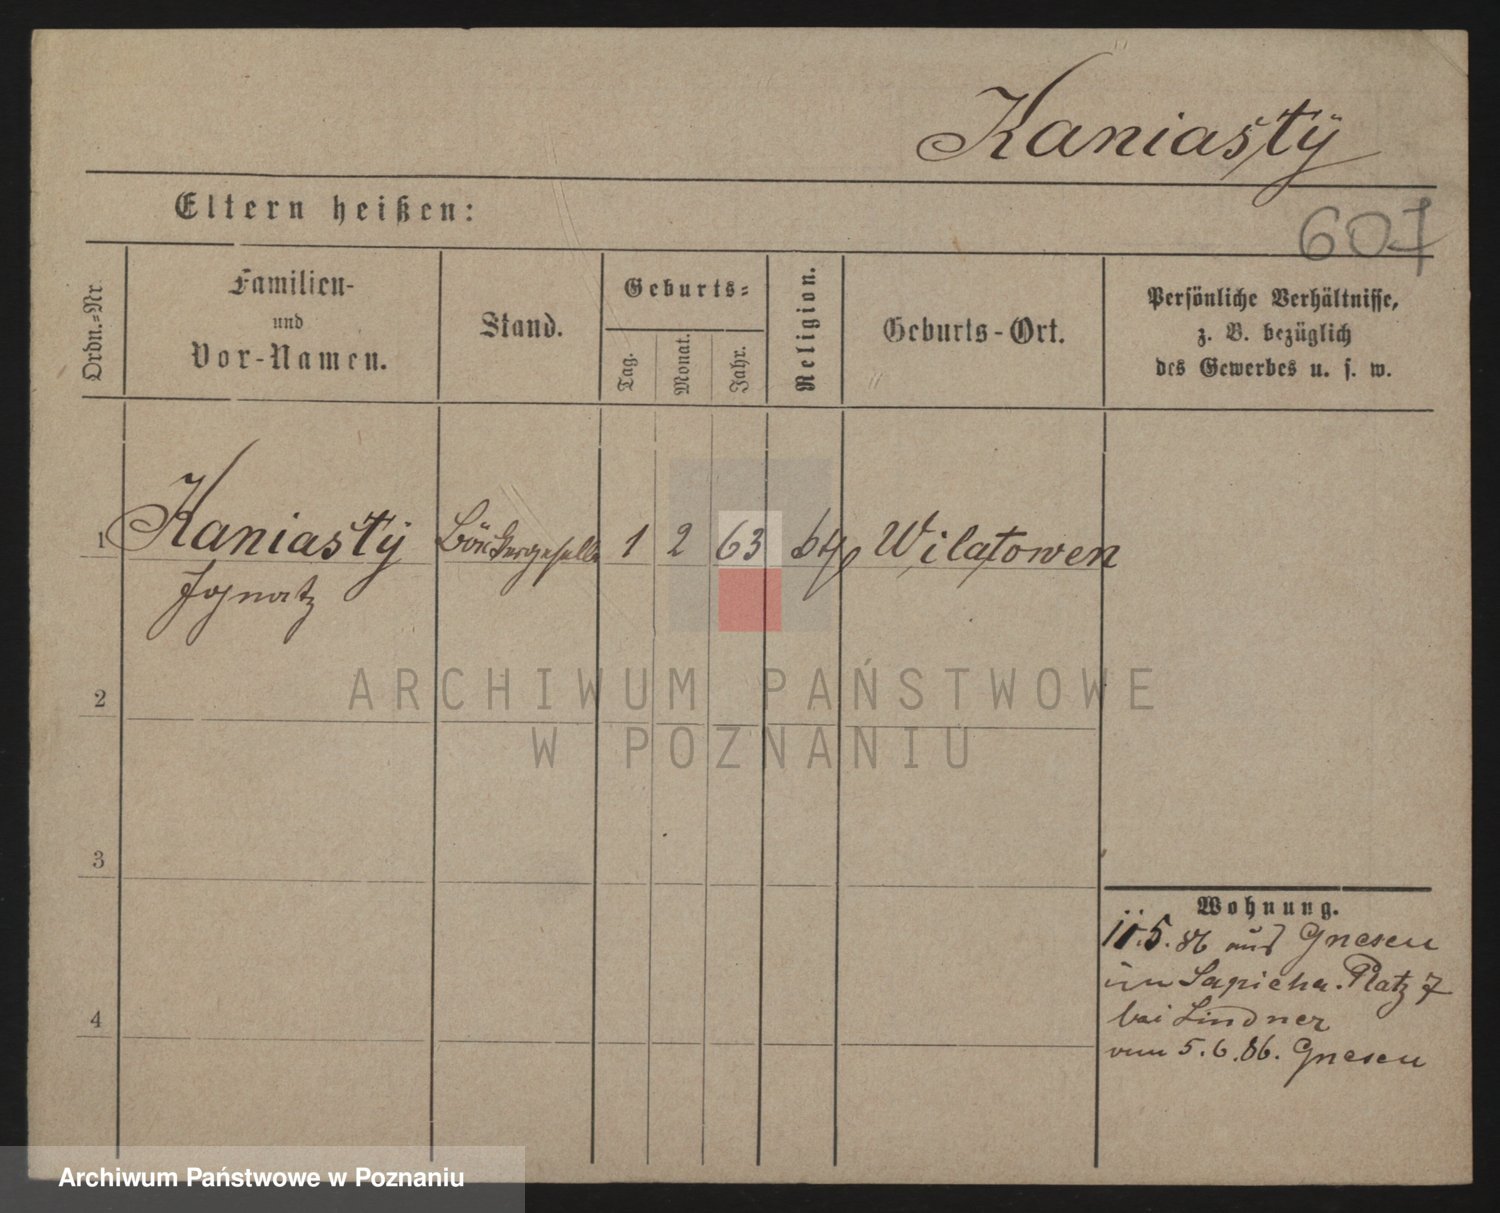 Kaniastÿ
Eltern heißen:
607
Ordn.=Nr
Familien-
und
Vor-Namen.
Stand.
Geburts=
Tag.
Monat.
Jahr.
Religion.
Geburts-Ort.
Persönliche Verhältnisse,
z. B. bezüglich
des Gewerbes u. s. w.
1 Kaniastÿ Bäckergeselle 1 2 63 Wilatowen
Ignatz
2
ARCHIWUM PAŃSTWOWE
W POZNANIU
3
Wohnung.
11.5.86 aus Gnesen
Sapieha.Platz 7
bei Lindner
5.6.86. Gnesen
4
Archiwum Państwowe w Poznaniu